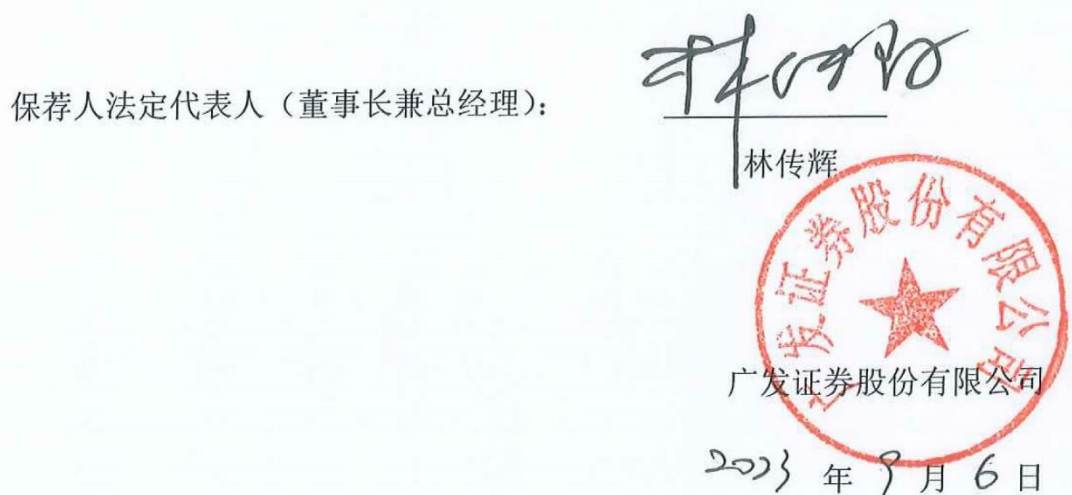 保荐人法定代表人（董事长兼总经理）：
林传辉
林传辉
广发证券股份有限公司
广发证券股份有限公司
2023 年 9 月 6 日